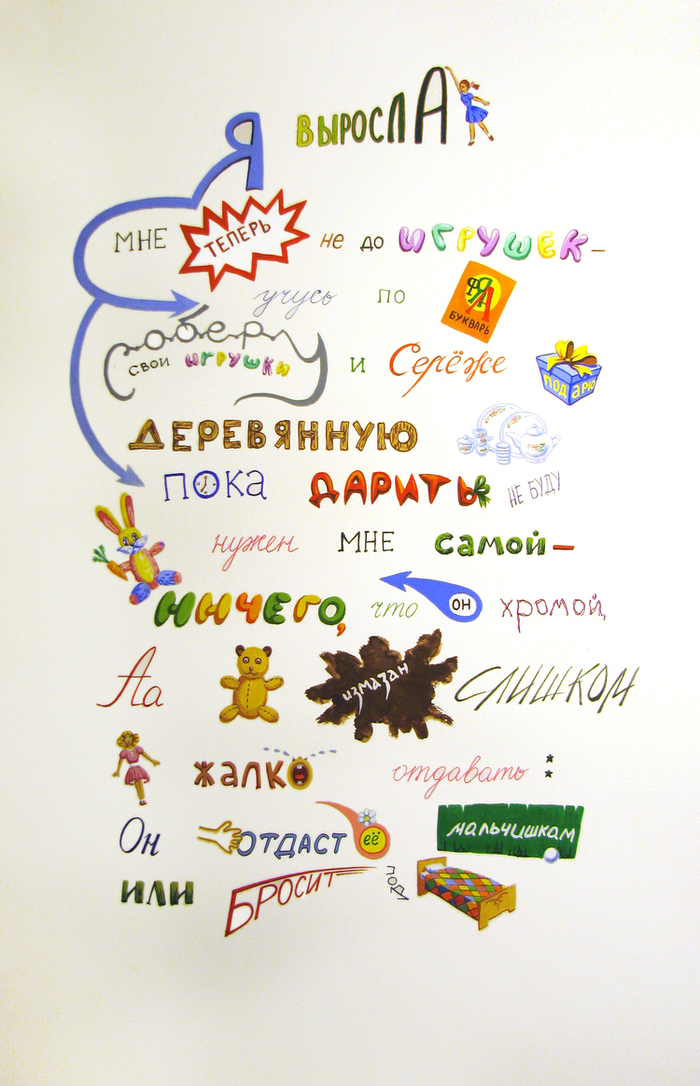 Я ВЫРОСЛА
МНЕ ТЕПЕРЬ не до ИГРУШЕК –
учусь по БУКВАРЬ
соберу свои игрушки и Серёже ПОДАРЮ
ДЕРЕВЯННУЮ
ПОКА ДАРИТЬ НЕ БУДУ
нужен МНЕ самой –
НИЧЕГО, что ОН хромой,
Аа измазан СЛИШКОМ
жалко отдавать:
Он ОТДАСТ её мальчишкам
или БРОСИТ ПОД